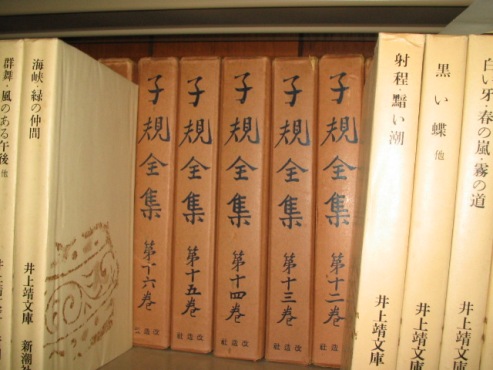 群舞・風のある午後 他
井上靖文庫
海峡・緑の仲間
井上靖文庫 新潮社
子規全集 第十六巻
改造社
子規全集 第十五巻
改造社
子規全集 第十四巻
改造社
子規全集 第十三巻
改造社
子規全集 第十二巻
改造社
射程・黯い潮
井上靖文庫
黒い蝶 他
井上靖文庫
白い牙・春の嵐・霧の道
井上靖文庫